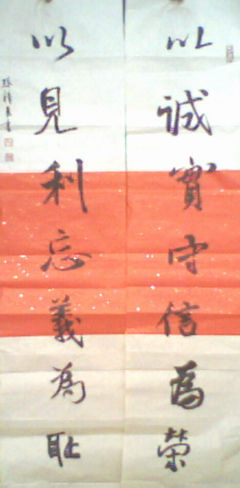 以誠實守信為榮
以見利忘義為耻